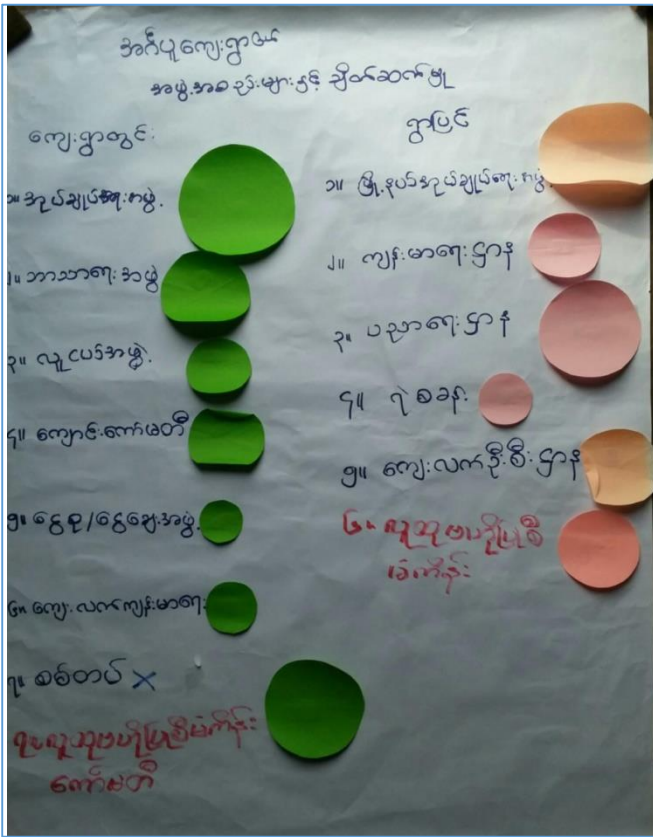 အင်္ဂပူကျေးရွာ၏
အဖွဲ့အစည်းများနှင့် ချိတ်ဆက်မှု
ကျေးရွာတွင်း
၁။ အုပ်ချုပ်ရေးအဖွဲ့
၂။ ဘာသာရေးအဖွဲ့
၃။ လူငယ်အဖွဲ့
၄။ ကျောင်းကော်မတီ
၅။ ငွေစု/ငွေချေးအဖွဲ့
၆။ ကျေးလက်ကျန်းမာရေး
၇။ စစ်တပ် X
၇။ လူထုဗဟိုပြုစီမံကိန်း
ကော်မတီ
ရွာပြင်
၁။ မြို့နယ်အုပ်ချုပ်ရေးအဖွဲ့
၂။ ကျန်းမာရေးဌာန
၃။ ပညာရေးဌာန
၄။ ရဲစခန်း
၅။ ကျေးလက်ဦးစီးဌာန
၆။ လူထုဗဟိုပြုစီ
မံကိန်း